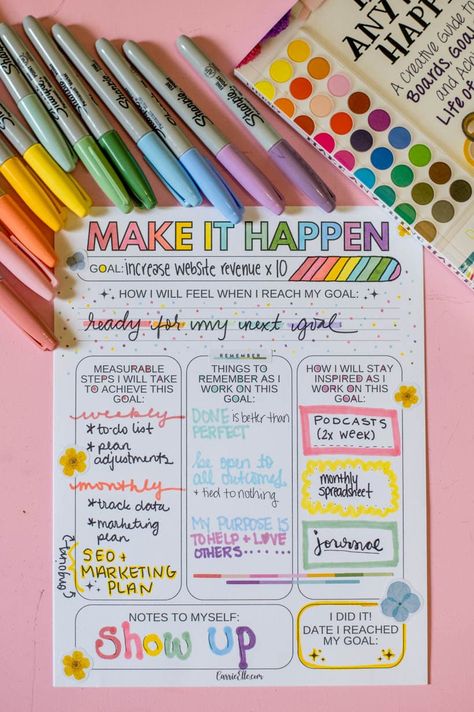 Sharpie
Sharpie
Sharpie
Sharpie
Sharpie
ANY
HAPP
A Creative Guide to
Boards, Goal
and Ac
Life of
MAKE IT HAPPEN
GOAL: increase website revenue x 10
HOW I WILL FEEL WHEN I REACH MY GOAL:
ready for my next goal
MEASURABLE
STEPS I WILL TAKE
TO ACHIEVE THIS
GOAL:
weekly
*to-do list
* plan
adjustments
monthly
*track data
*marketing
plan
ongoing
SEO +
MARKETING
PLAN
REMEMBER
THINGS TO
REMEMBER AS I
WORK ON THIS
GOAL:
DONE is better than
PERFECT
be open to
all outcomes
+ tied to nothing
MY PURPOSE IS
TO HELP + LOVE
OTHERS
HOW I WILL STAY
INSPIRED AS I
WORK ON THIS
GOAL:
PODCASTS
(2x week)
monthly
spreadsheet
journal
NOTES TO MYSELF:
Show UP
I DID IT!
DATE I REACHED
MY GOAL:
CarrieElle.com